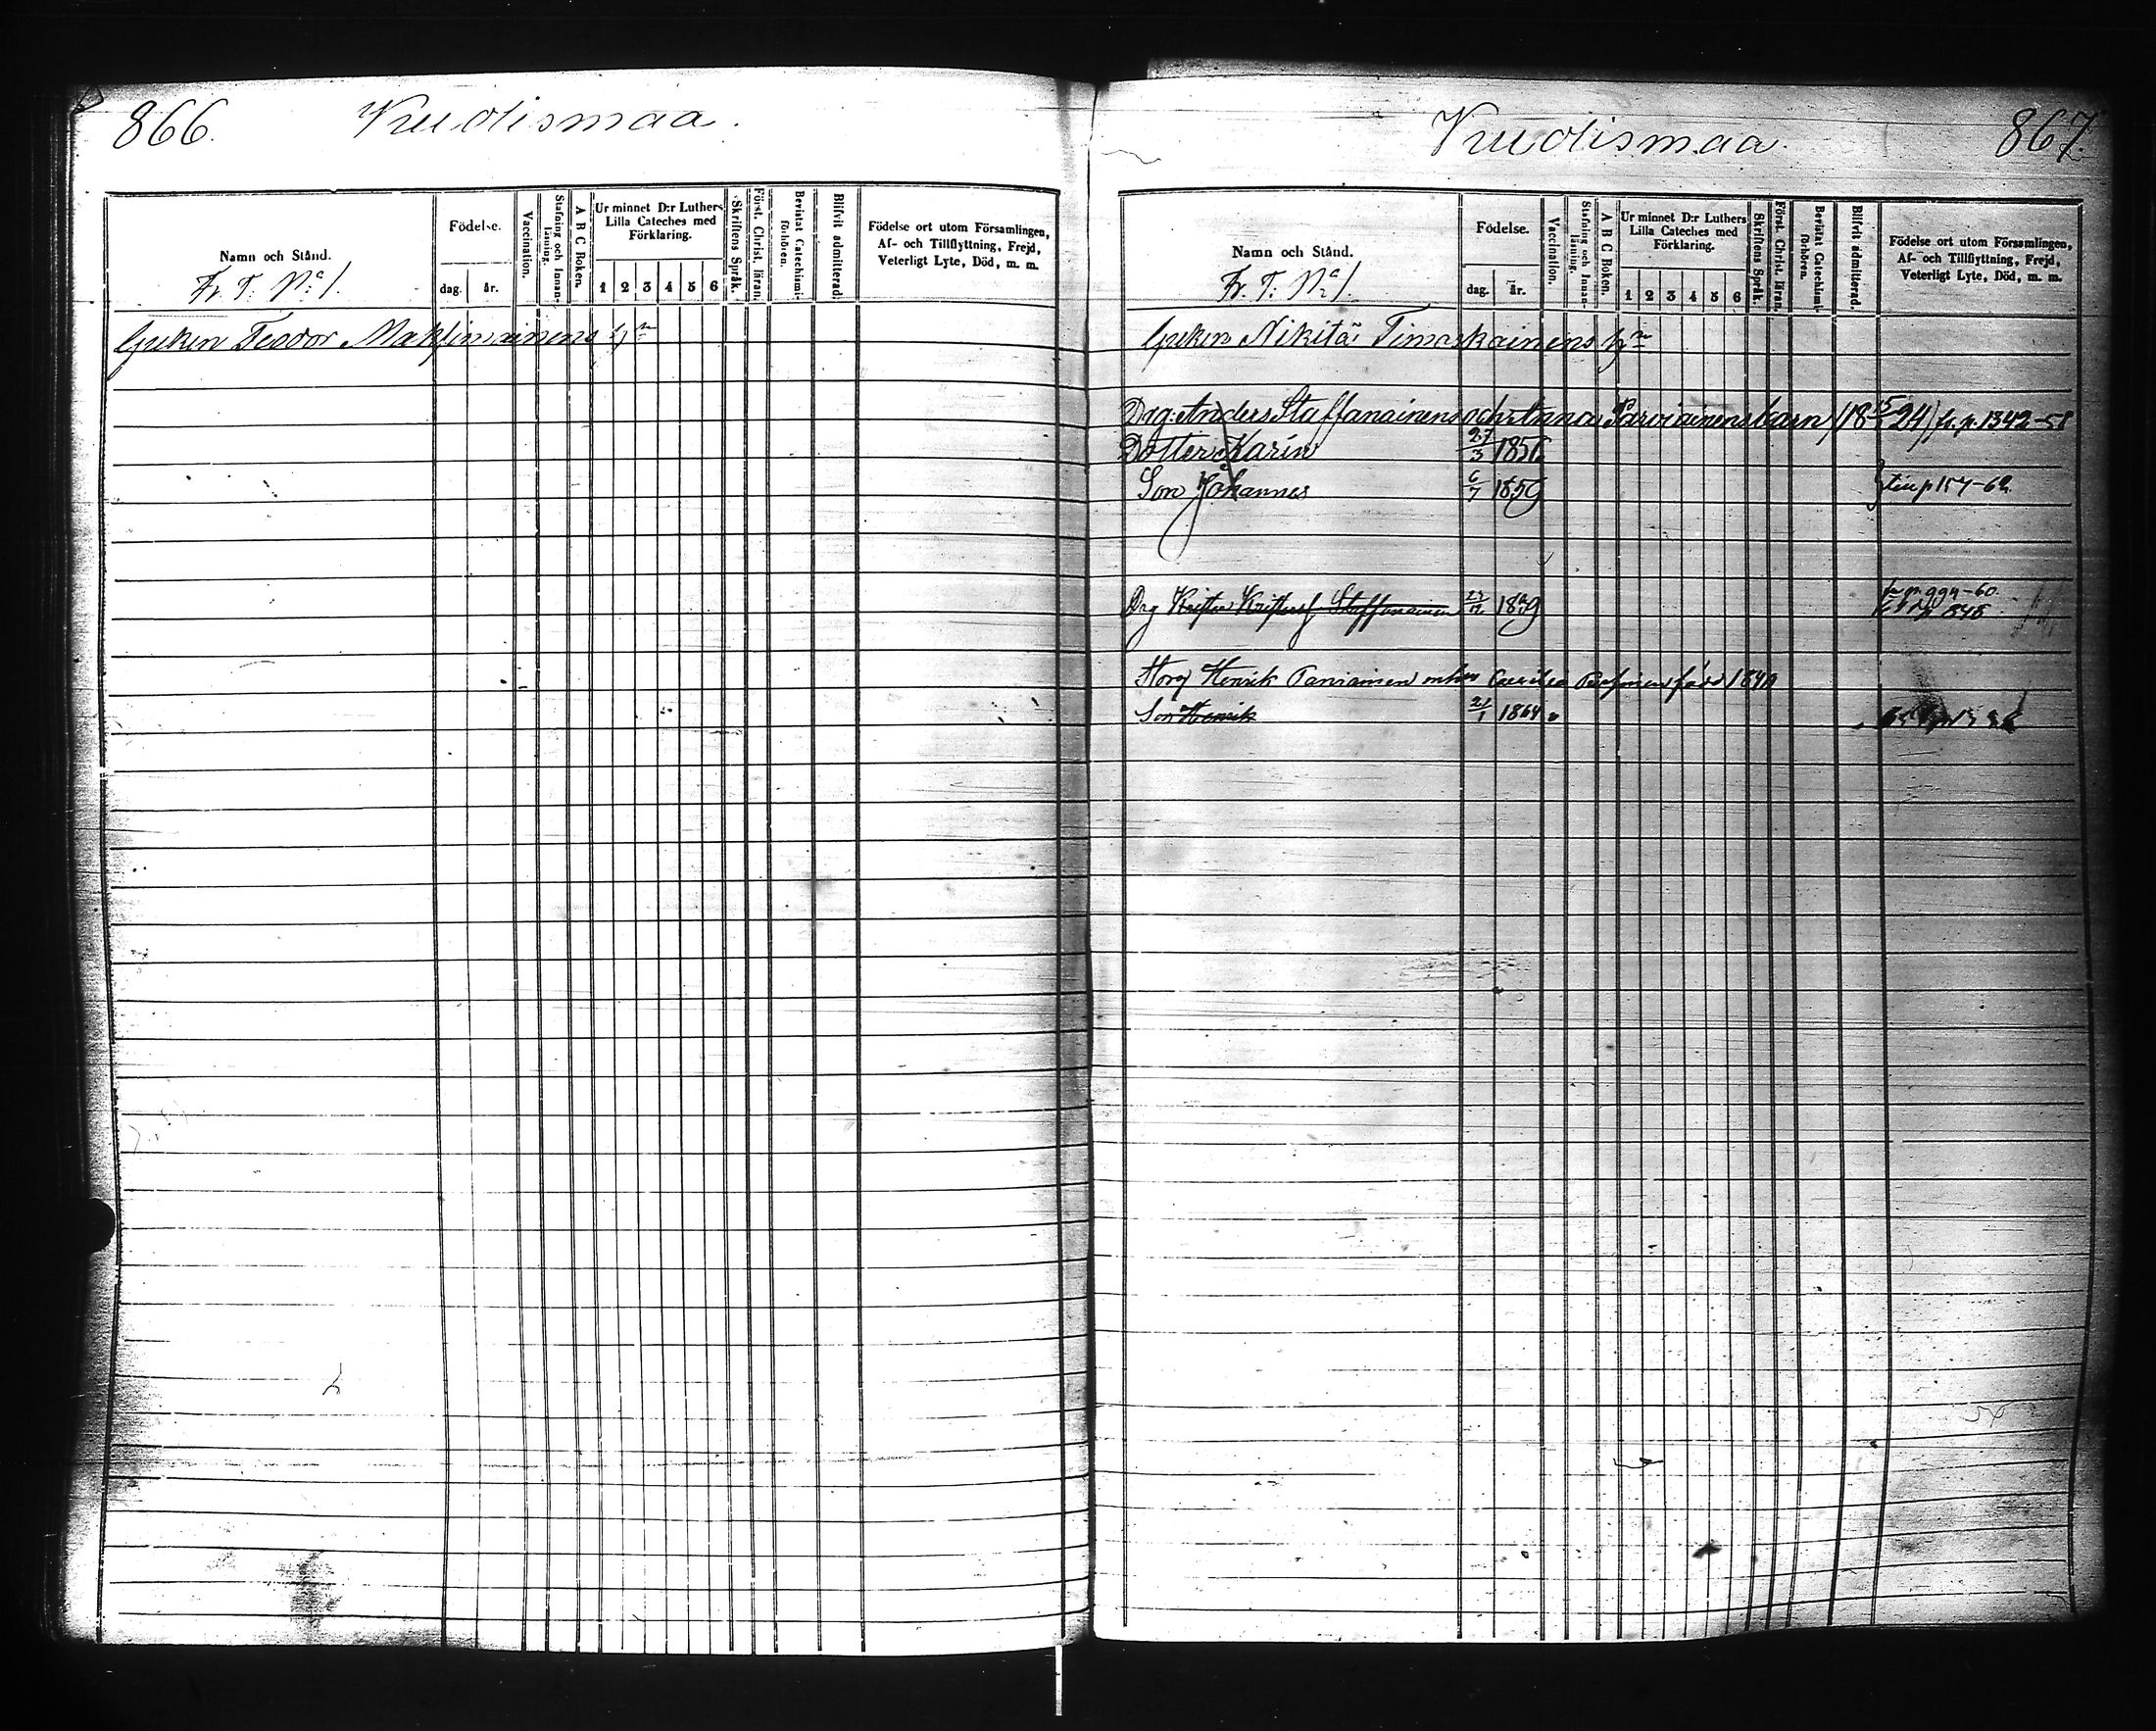 866. Kuolismaa.
Namn och Stånd.
Fr. T. No 1.
Födelse.
dag. år.
Vaccination.
Stafning och Innanläsning.
A B C Boken.
Ur minnet D:r Luthers Lilla Cateches med Förklaring.
1 2 3 4 5 6
Skriftens Språk.
Först. Christ. läran.
Bevistat Catechismiförhören.
Blifvit admitterad.
Födelse ort utom Församlingen, Af- och Tillflyttning, Frejd, Veterligt Lyte, Död, m. m.
Greken Feodor Maksimainens hn
Kuolismaa. 867.
Namn och Stånd.
Fr. T. No 1.
Födelse.
dag. år.
Vaccination.
Stafning och Innanläsning.
A B C Boken.
Ur minnet D:r Luthers Lilla Cateches med Förklaring.
1 2 3 4 5 6
Skriftens Språk.
Först. Christ. läran.
Bevistat Catechismiförhören.
Blifvit admitterad.
Födelse ort utom Församlingen, Af- och Tillflyttning, Frejd, Veterligt Lyte, Död, m. m.
Greken Nikitä Timoskainens hn
Drg. Anders Staffanainens och Anna Parviainens barn (18 15/5 24) fr. p. 1342-58
Dotter Karin 27/3 1856
Son Johannes 6/7 1859 till p 157-62
Drg Krister Kristersf Staffanainen 18 9 fr p. 994-60
Horg Henrik född 184
Son Henrik 21/1 1864